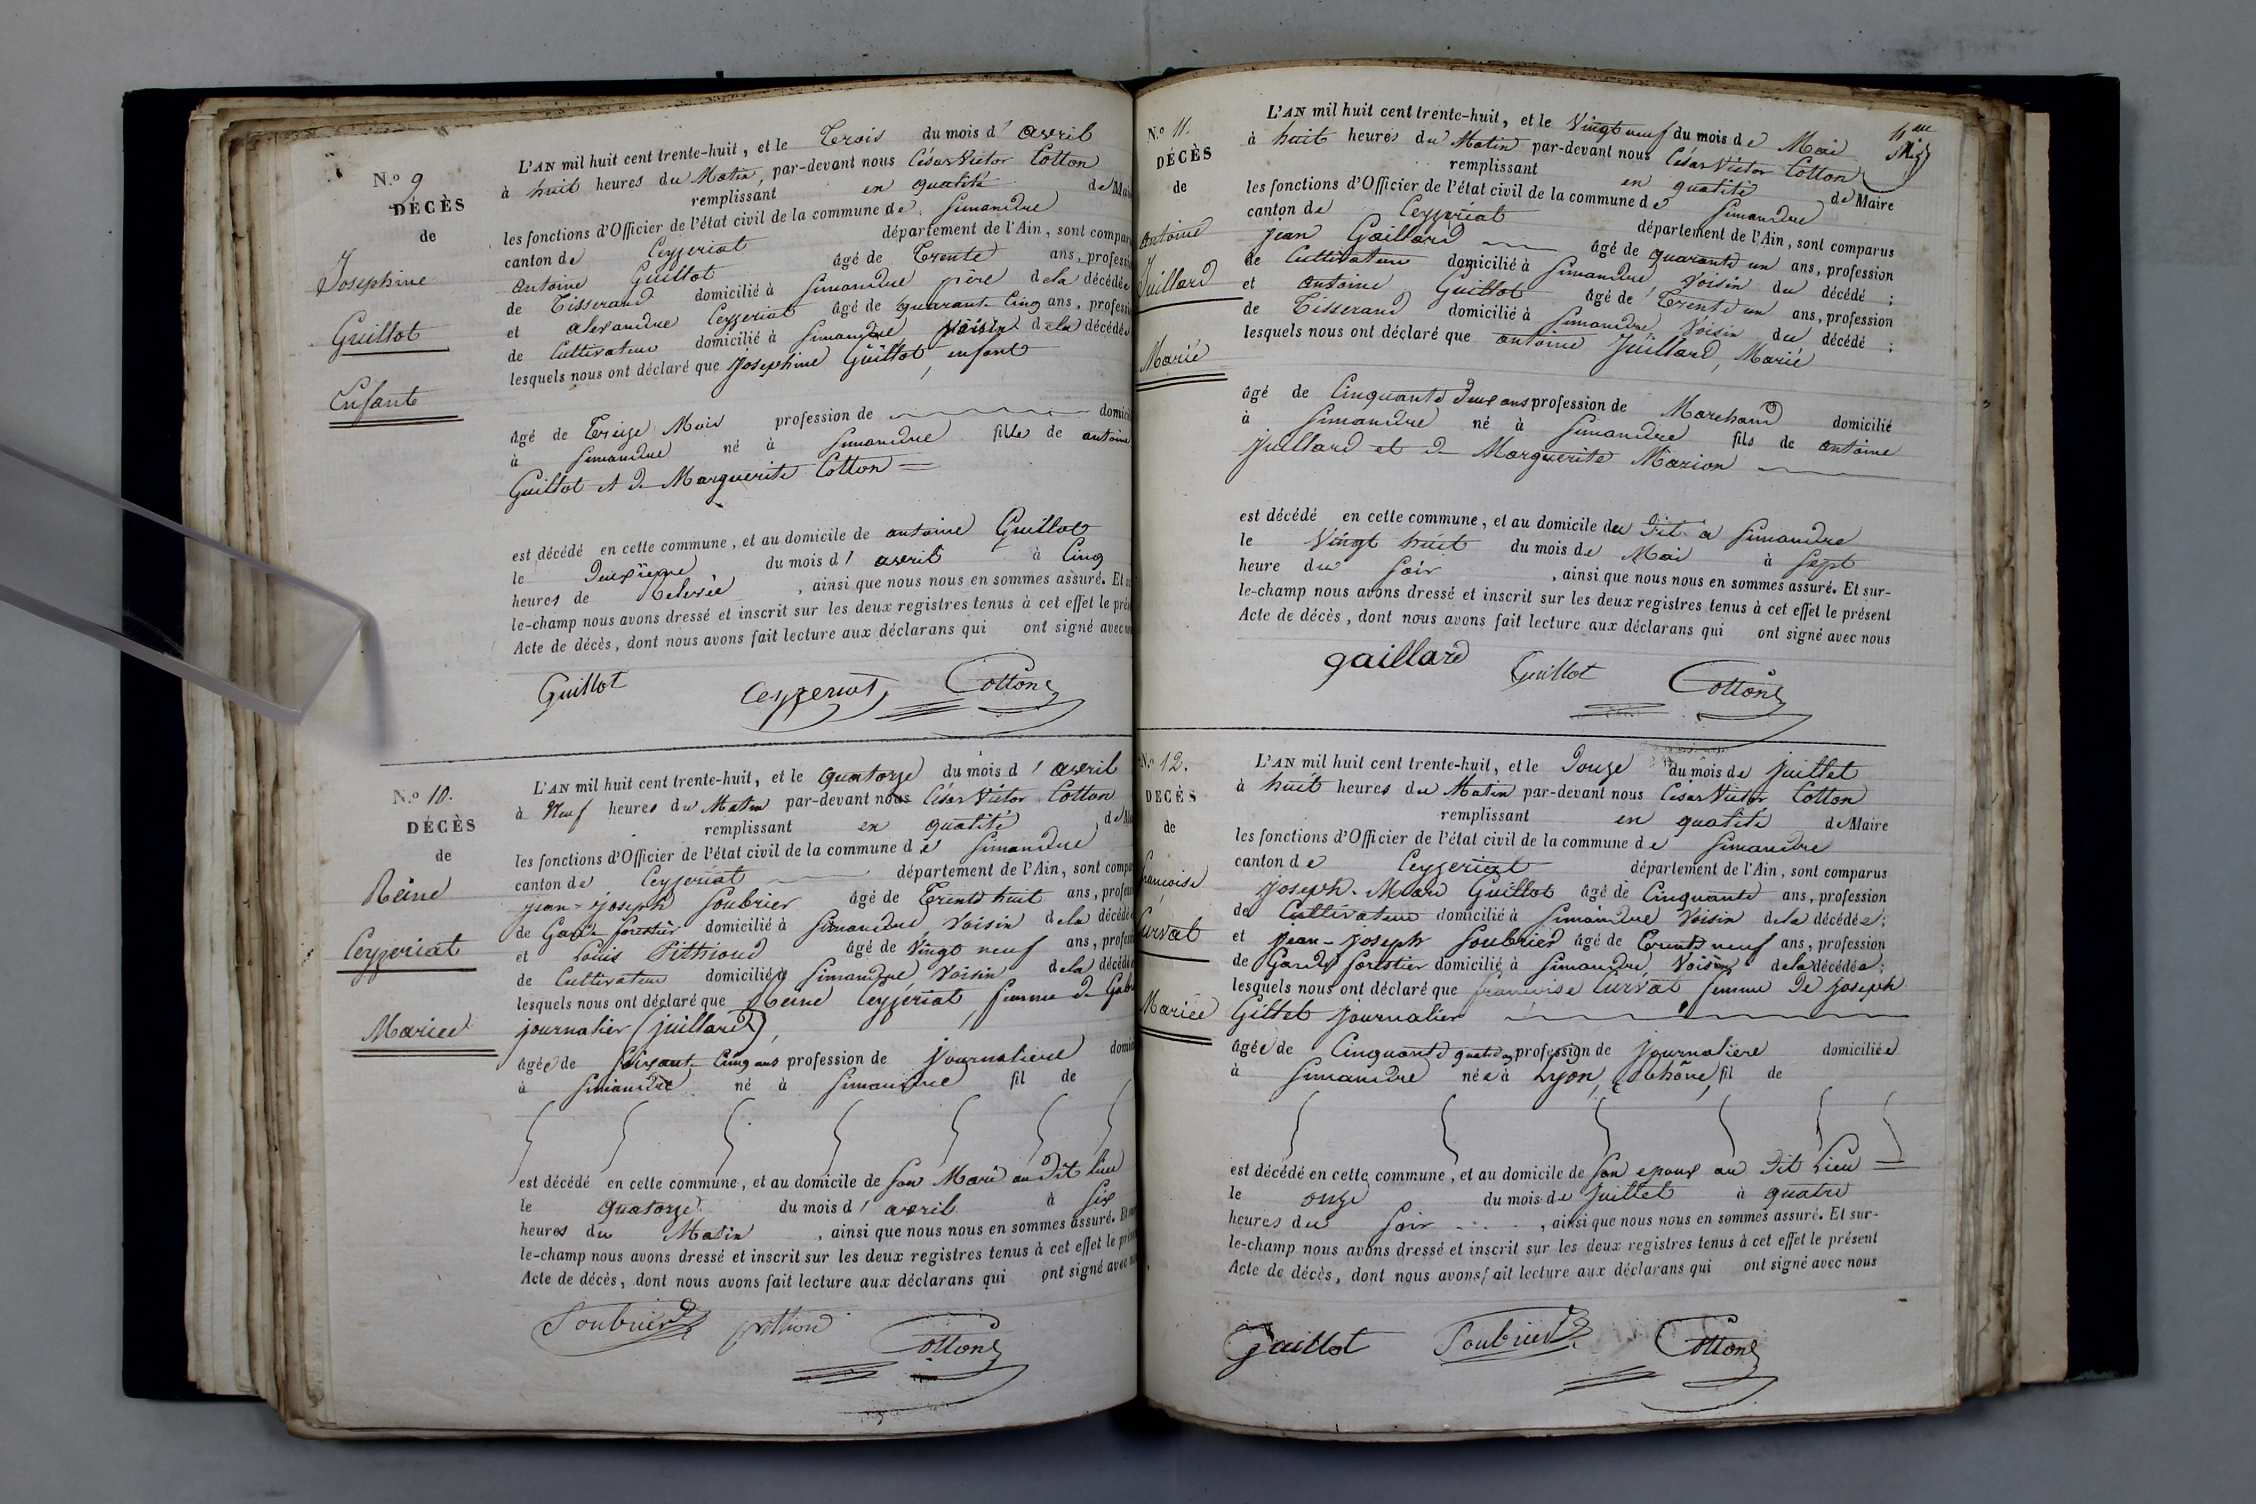 N.o 9
DÉCÈS
de
Josephine
Guillot
Enfante
L'AN mil huit cent trente-huit, et le Trois du mois d' avril
à huit heures du Matin, par-devant nous César Victor Cotton
remplissant en qualité de Mai
les fonctions d'Officier de l'état civil de la commune de Simandre
canton de Ceyzeriat département de l'Ain, sont compar
antoine Guillot âgé de Trente ans, professi
de Tisserand domicilié à Simandre père de la décédée
et alexandre Ceyzeriat âgé de quarante Cinq ans, professi
de Cultivateur domicilié à Simandre, voisin de la décédée
lesquels nous ont déclaré que Josephine Guillot, enfant
âgé de Treize Mois profession de domici
à Simandre né à Simandre fille de antoine
Guillot et de Marguerite Cotton
est décédé en cette commune, et au domicile de antoine Guillot
le Deuxième du mois d' avril à Cinq
heures de Relevée, ainsi que nous nous en sommes assuré. Et s
le-champ nous avons dressé et inscrit sur les deux registres tenus à cet effet le pré
Acte de décès, dont nous avons fait lecture aux déclarans qui ont signé avec
Guillot Ceyzeriat Cotton
N.o 10.
DÉCÈS
de
Reine
Ceyzeriat
Mariee
L'AN mil huit cent trente-huit, et le quatorze du mois d' avril
à Neuf heures du Matin par-devant nous César Victor Cotton
remplissant en qualité de Ma
les fonctions d'Officier de l'état civil de la commune de Simandre
canton de Ceyzeriat département de l'Ain, sont compa
jean-joseph Soubrier âgé de Trente huit ans, profes
de Garde forestier domicilié à Simandre, Voisin de la décédé
et Louis Pithioud âgé de Vingt neuf ans, profes
de Cultivateur domicilié à Simandre, Voisin de la décédé
lesquels nous ont déclaré que Reine Ceyzeriat, femme de Gab
journalier (juillard),
âgée de soixante Cinq ans profession de Journaliere domic
à Simandre né à Simandre fil de
est décédé en cette commune, et au domicile de Son Mari au Dit lieu
le quatorze du mois d' avril à Six
heures du Matin, ainsi que nous nous en sommes assuré. Et
le-champ nous avons dressé et inscrit sur les deux registres tenus à cet effet le pré
Acte de décès, dont nous avons fait lecture aux déclarans qui ont signé avec
Soubrier Cotton
N.o 11.
DÉCÈS
de
Antoine
Juillard
Marié
L'AN mil huit cent trente-huit, et le Vingt neuf du mois de Mai
à huit heures du Matin par-devant nous César Victor Cotton
remplissant en qualité de Maire
les fonctions d'Officier de l'état civil de la commune de Simandre
canton de Ceyzeriat département de l'Ain, sont comparus
jean Gaillard âgé de quarante un ans, profession
de Cultivateur domicilié à Simandre, Voisin du décédé ;
et antoine Guillot âgé de Trente un ans, profession
de Tisserand domicilié à Simandre, Voisin du décédé ;
lesquels nous ont déclaré que antoine Juillard, Marié
âgé de Cinquante Deux ans profession de Marchand domicilié
à Simandre né à Simandre fils de antoine
juillard et de Marguerite Marion
est décédé en cette commune, et au domicile du Dit à Simandre
le Vingt huit du mois de Mai à Sept
heure du Soir, ainsi que nous nous en sommes assuré. Et sur-
le-champ nous avons dressé et inscrit sur les deux registres tenus à cet effet le présent
Acte de décès, dont nous avons fait lecture aux déclarans qui ont signé avec nous
gaillard Guillot Cotton
N.o 12.
DÉCÈS
de
françoise
Curvat
Mariée
L'AN mil huit cent trente-huit, et le Douze du mois de Juillet
à huit heures du Matin par-devant nous César Victor Cotton
remplissant en qualité de Maire
les fonctions d'Officier de l'état civil de la commune de Simandre
canton de Ceyzeriat département de l'Ain, sont comparus
joseph-Marie Guillot âgé de Cinquante ans, profession
de Cultivateur domicilié à Simandre Voisin de la décédée ;
et jean-joseph Soubrier âgé de Trente neuf ans, profession
de Garde forestier domicilié à Simandre, Voisin de la décédée ;
lesquels nous ont déclaré que francoise Curvat femme de joseph
Gillet journalier
âgée de Cinquante quatre ans profession de Journaliere domiciliée
à Simandre née à Lyon, (Rhône) fil de
est décédé en cette commune, et au domicile de Son epoux au Dit Lieu
le onze du mois de Juillet à quatre
heures du Soir, ainsi que nous nous en sommes assuré. Et sur-
le-champ nous avons dressé et inscrit sur les deux registres tenus à cet effet le présent
Acte de décès, dont nous avons fait lecture aux déclarans qui ont signé avec nous
Guillot Soubrier Cotton